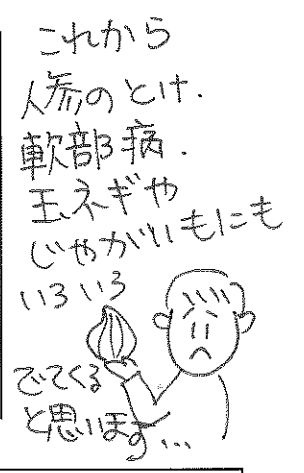 これから
人参のとけ.
軟部病.
玉ネギや
じゃがいもにも
いろいろ
でてくる
と思います...